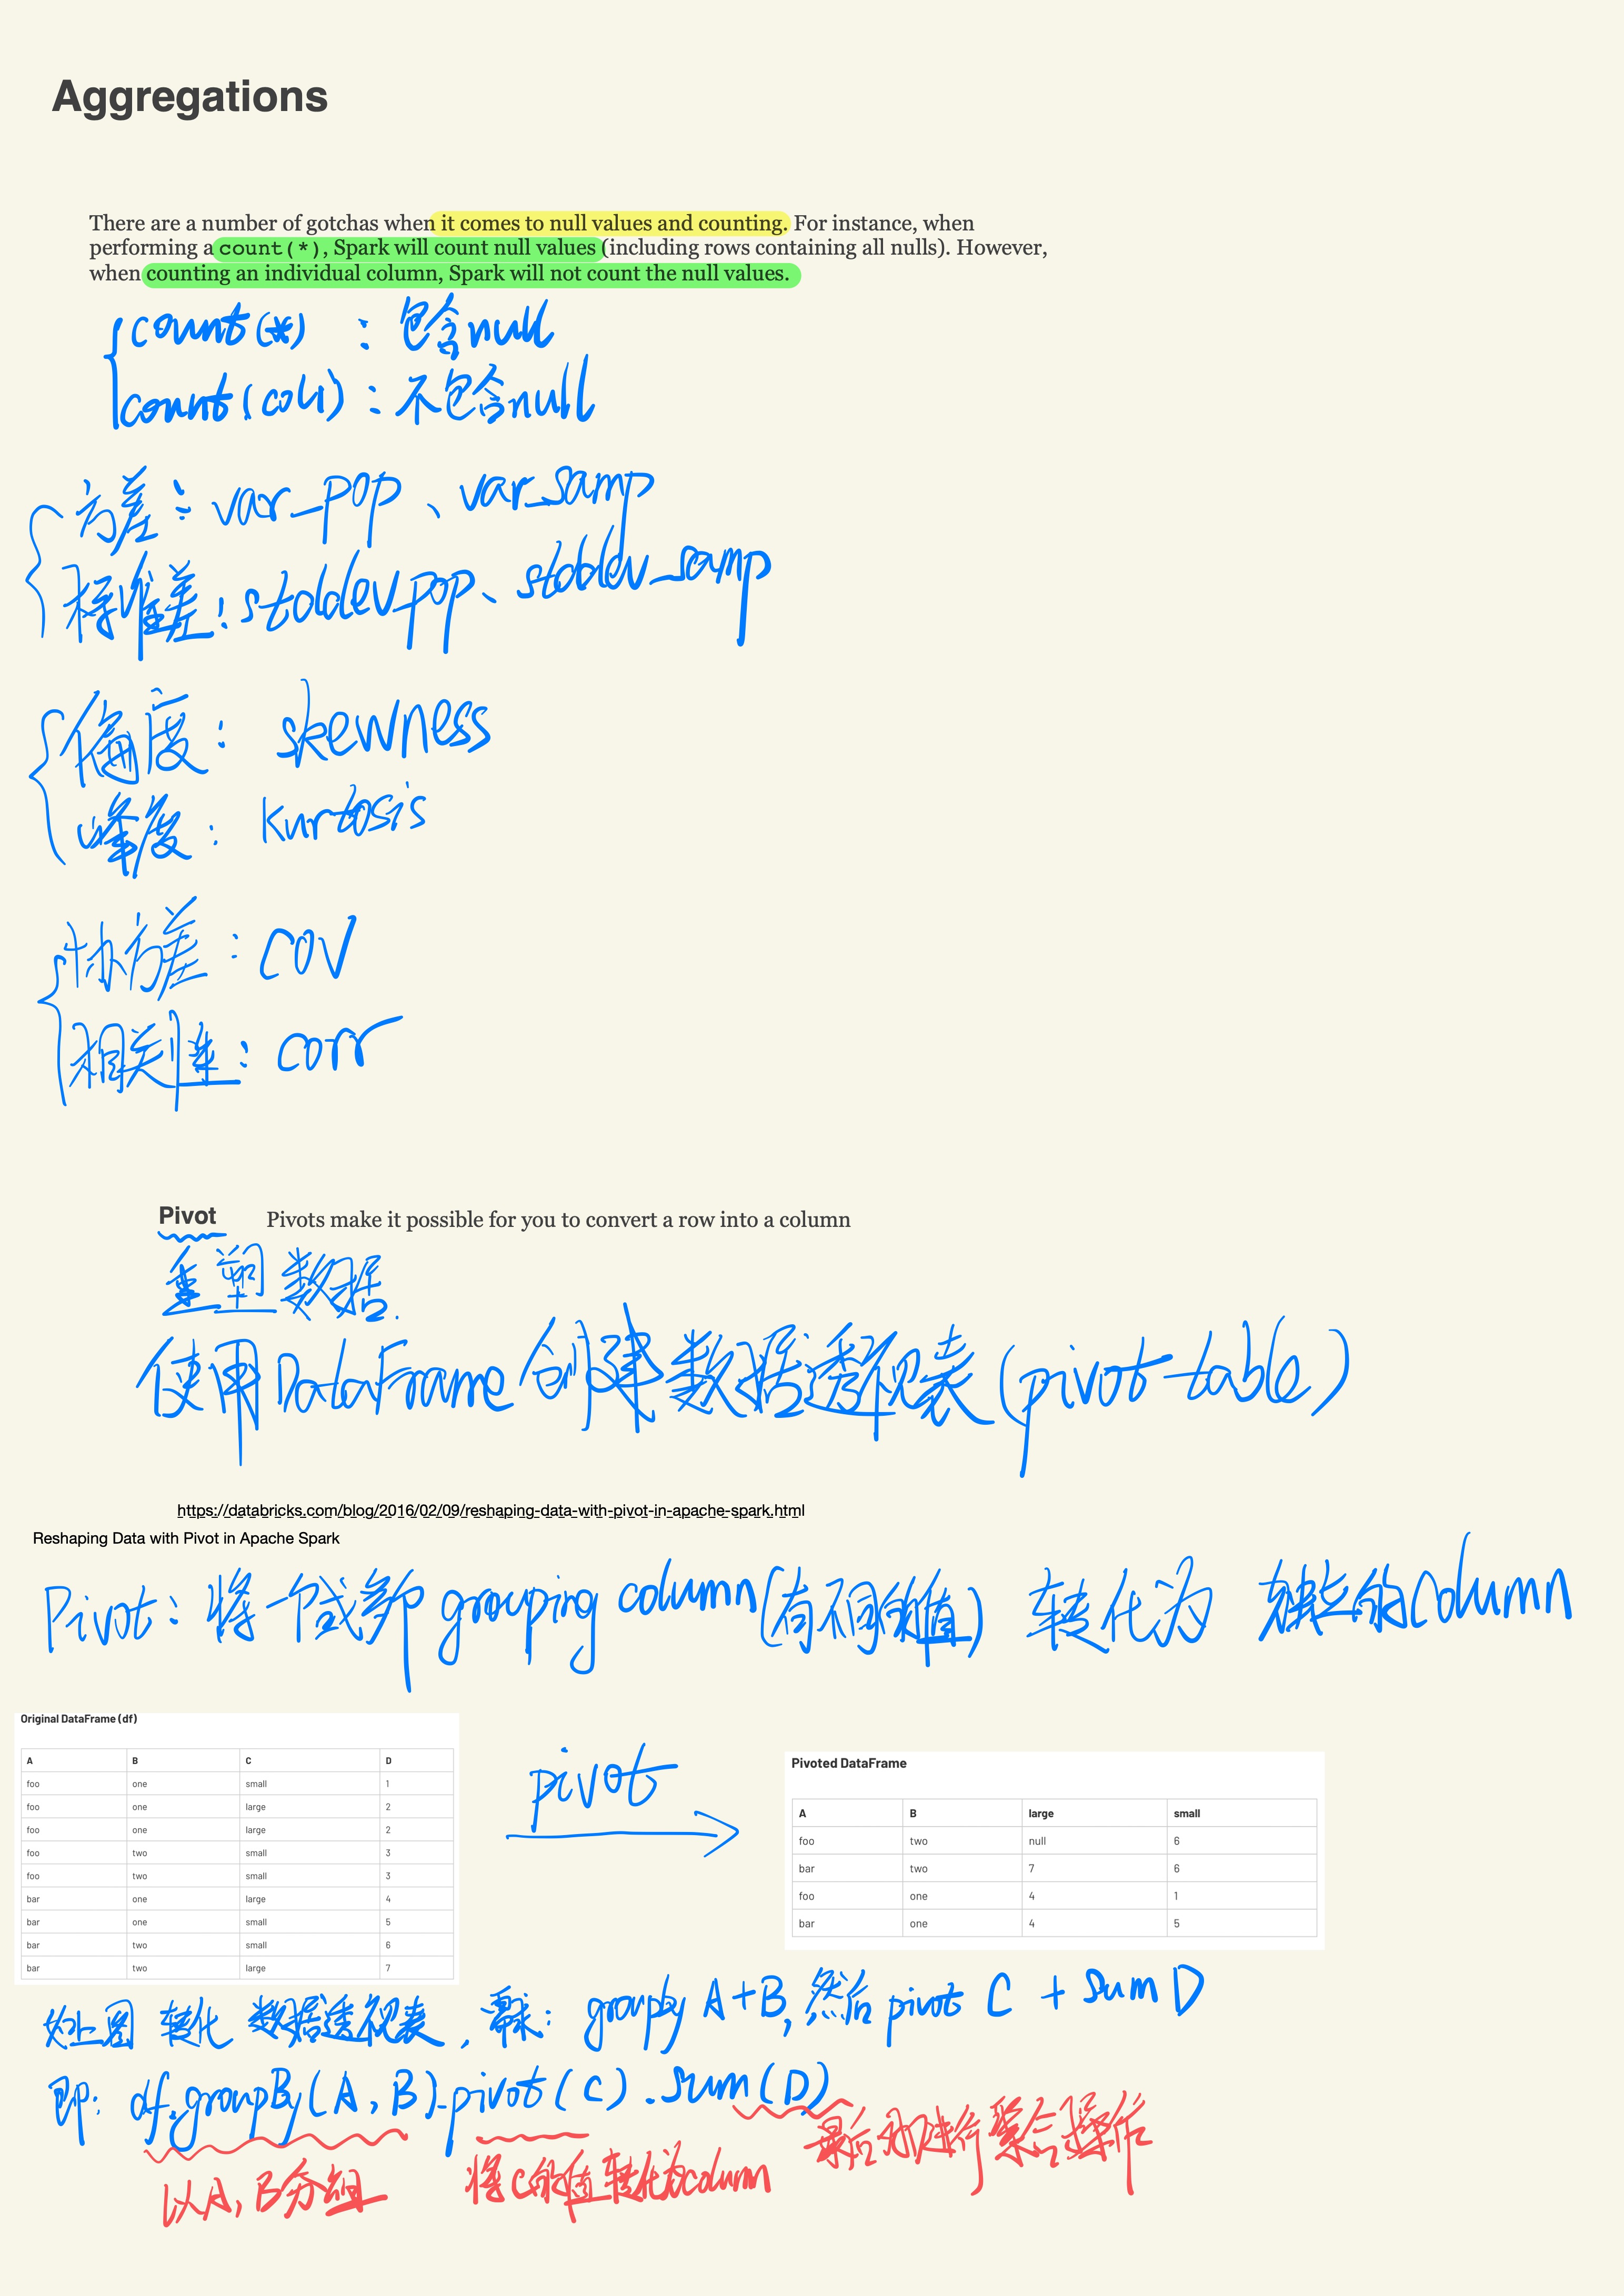 Aggregations
There are a number of gotchas when it comes to null values and counting. For instance, when
performing a count(*), Spark will count null values (including rows containing all nulls). However,
when counting an individual column, Spark will not count the null values.
count(*) : 包含null
count(col1) : 不包含null
方差: var_pop、var_samp
标准差: stddev_pop、stddev_samp
偏度: skewness
峰度: kurtosis
协方差: cov
相关性: corr
Pivot Pivots make it possible for you to convert a row into a column
重塑数据.
使用DataFrame创建数据透视表(pivot-table)
https://databricks.com/blog/2016/02/09/reshaping-data-with-pivot-in-apache-spark.html
Reshaping Data with Pivot in Apache Spark
Pivot: 将一个或多个grouping column(有不同的值) 转化为 的column
Original DataFrame (df)
A B C D
foo one small 1
foo one large 2
foo one large 2
foo two small 3
foo two small 3
bar one large 4
bar one small 5
bar two small 6
bar two large 7
pivot
Pivoted DataFrame
A B large small
foo two null 6
bar two 7 6
foo one 4 1
bar one 4 5
如上图 转化 数据透视表, 需求: groupby A+B, 然后 pivot C + sum D
即: df.groupBy(A, B).pivot(C).sum(D)
以A, B分组 将C的值转化为column 最后对D进行聚合操作